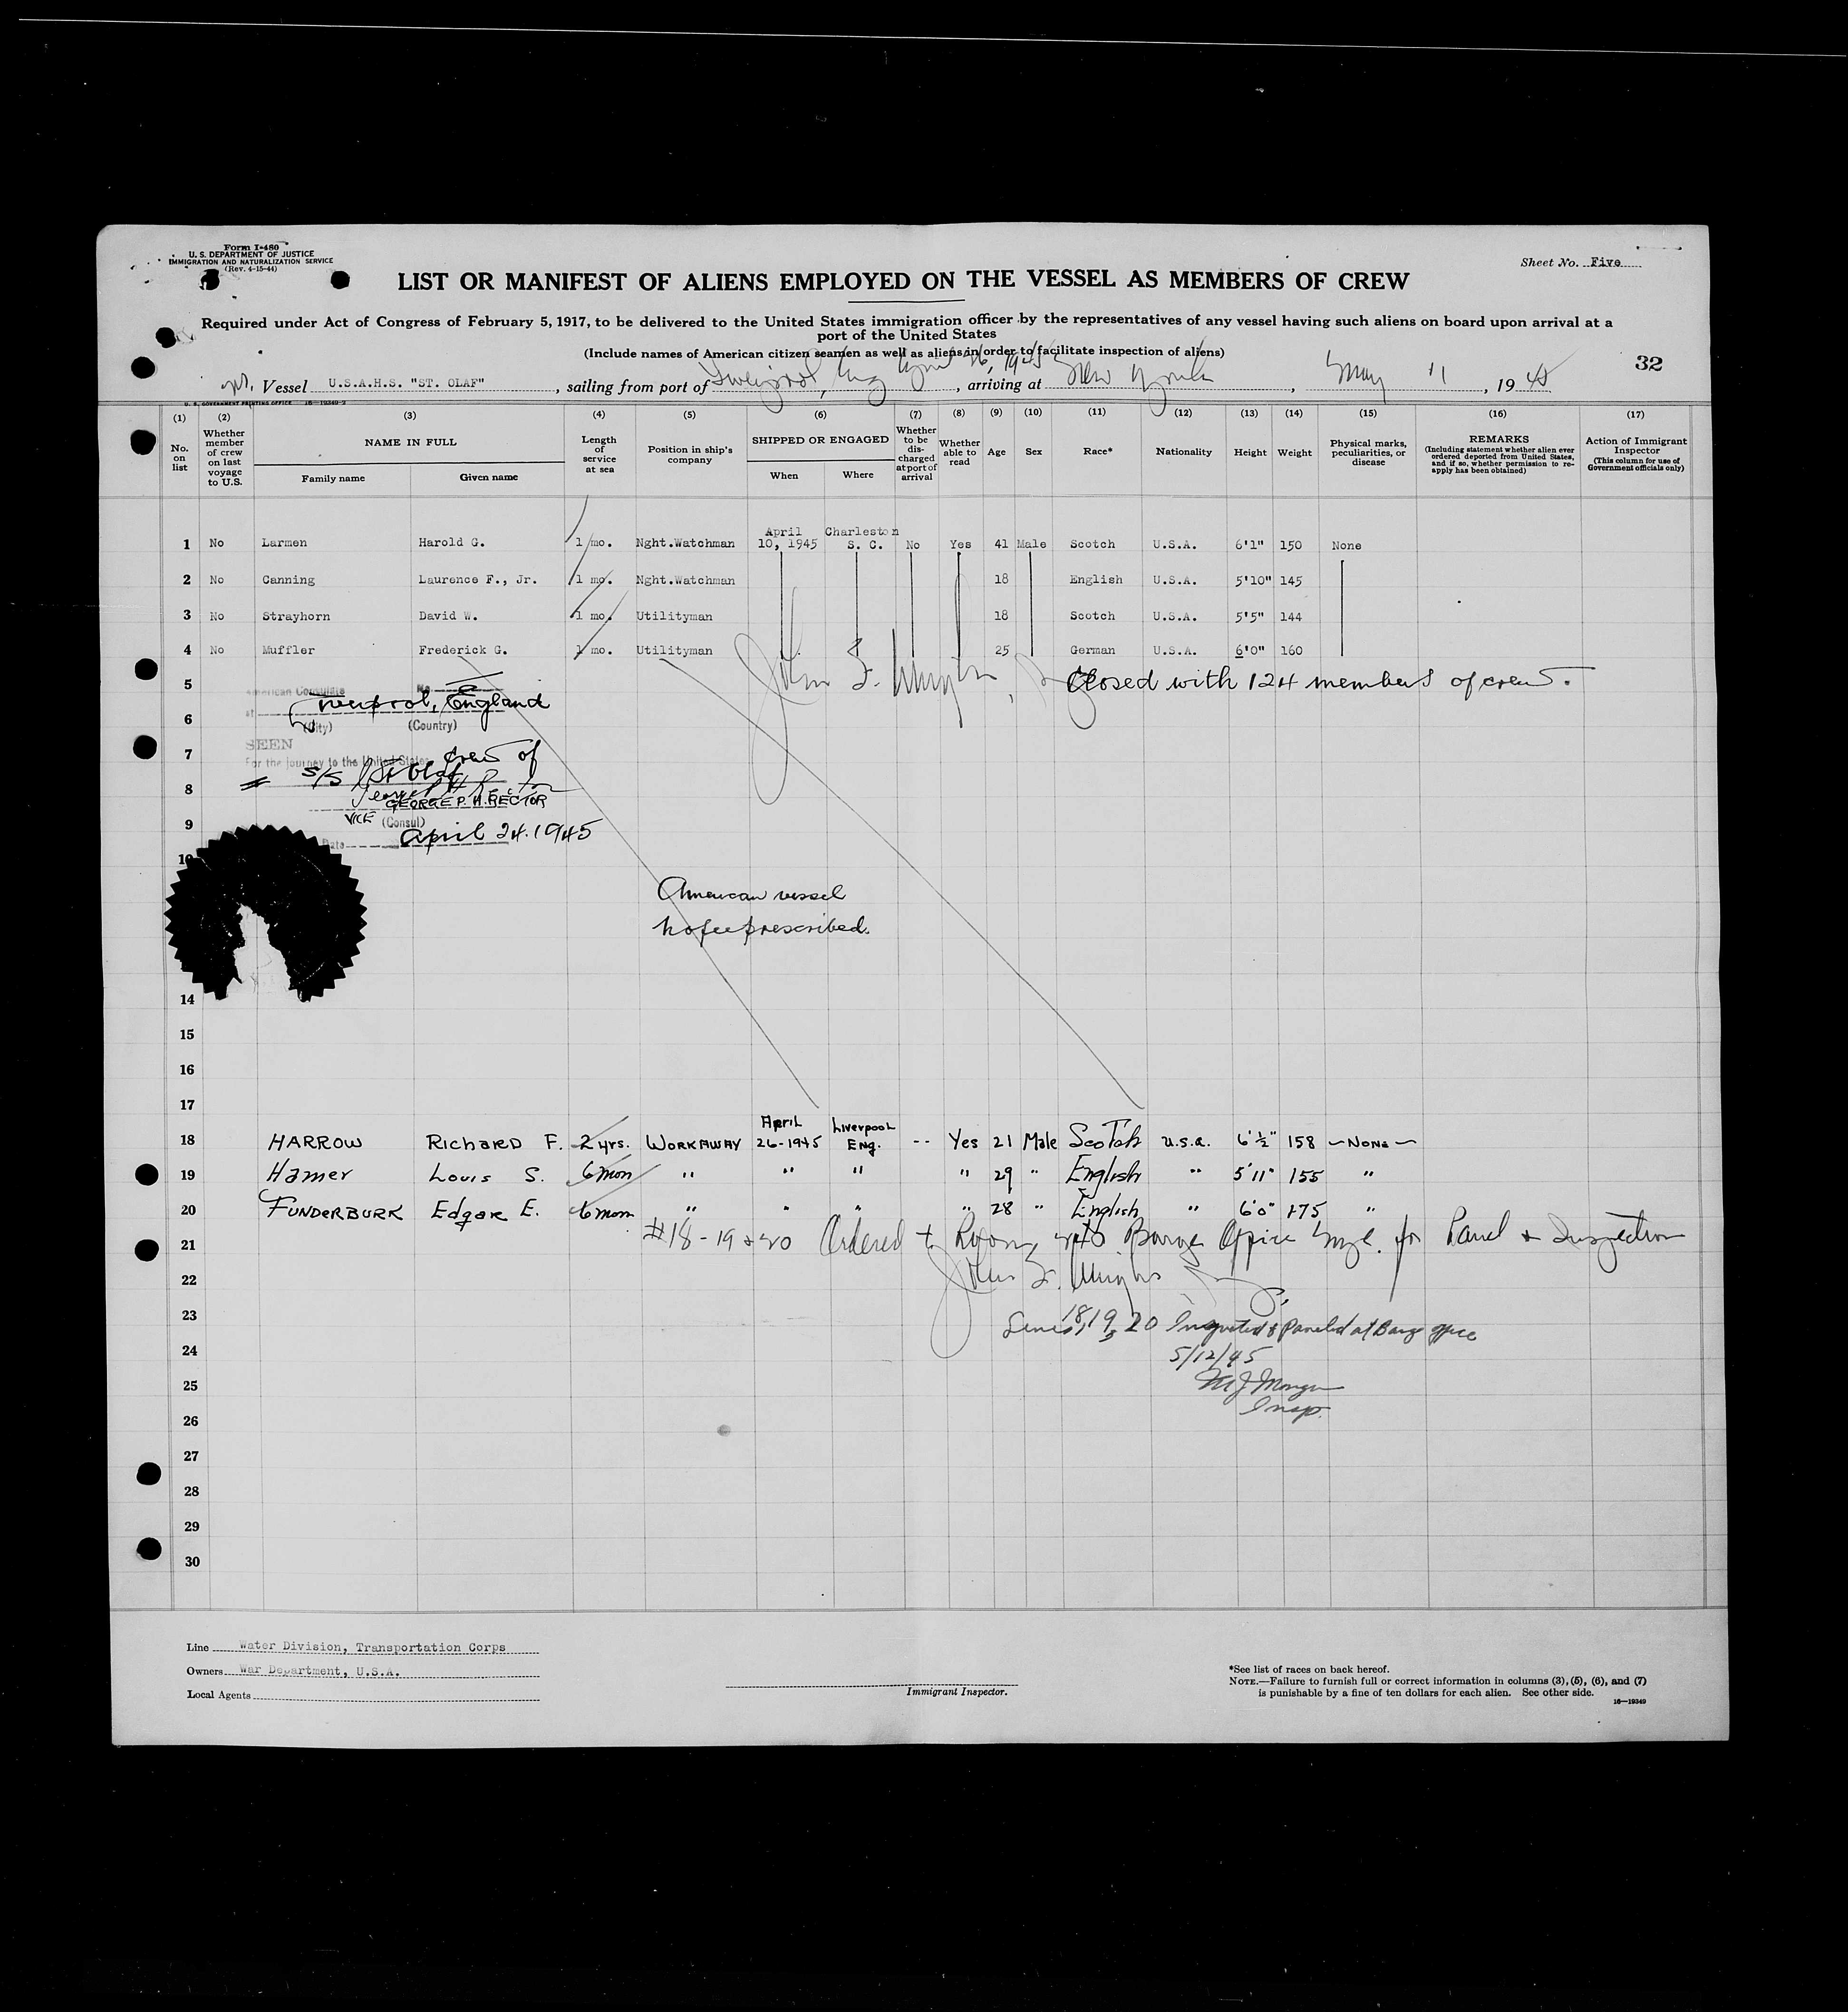 Form I-480
U. S. DEPARTMENT OF JUSTICE
IMMIGRATION AND NATURALIZATION SERVICE
(Rev. 4-15-44)
Sheet No. Five
LIST OR MANIFEST OF ALIENS EMPLOYED ON THE VESSEL AS MEMBERS OF CREW
Required under Act of Congress of February 5, 1917, to be delivered to the United States immigration officer by the representatives of any vessel having such aliens on board upon arrival at a
port of the United States
(Include names of American citizen seamen as well as aliens in order to facilitate inspection of aliens)
32
Vessel U.S.A.H.S. "ST. OLAF", sailing from port of Liverpool, Eng April 26, 1945, arriving at New York, May 11, 1945
U. S. GOVERNMENT PRINTING OFFICE 16—19349-2
(1) (2) (3) (4) (5) (6) (7) (8) (9) (10) (11) (12) (13) (14) (15) (16) (17)
No. on list
Whether member of crew on last voyage to U.S.
NAME IN FULL
Family name Given name
Length of service at sea
Position in ship's company
SHIPPED OR ENGAGED
When Where
Whether to be discharged at port of arrival
Whether able to read
Age
Sex
Race*
Nationality
Height
Weight
Physical marks, peculiarities, or disease
REMARKS
(Including statement whether alien ever ordered deported from United States, and if so, whether permission to reapply has been obtained)
Action of Immigrant Inspector
(This column for use of Government officials only)
1 No Larmen Harold G. 1 mo. Nght.Watchman April 10, 1945 Charleston S. C. No Yes 41 Male Scotch U.S.A. 6'1" 150 None
2 No Canning Laurence F., Jr. 1 mo. Nght.Watchman 18 English U.S.A. 5'10" 145
3 No Strayhorn David W. 1 mo. Utilityman 18 Scotch U.S.A. 5'5" 144
4 No Muffler Frederick G. 1 mo. Utilityman 25 German U.S.A. 6'0" 160
5 Closed with 124 members of crew.
American Consulate No.
at Liverpool, England
6 (City) (Country)
SEEN
7 For the journey to the United States Crew of
S/S St Olaf
8
GEORGE P. H. RECTOR
VICE (Consul)
9 Date April 24. 1945
10
American vessel
no fee prescribed.
14
15
16
17
18 HARROW RICHARD F. 2 yrs. WORKAWAY April 26-1945 Liverpool Eng. -- Yes 21 Male Scotch U.S.A. 6'½" 158 —None—
19 Hamer Louis S. 6 mon " " " " 29 " English " 5'11" 155 "
20 FUNDERBURK Edgar E. 6 mon " " " " 28 " English " 6'0" 175 "
21 #18-19 & 20 Ordered to Barge Office for Panel & Inspection
22
23 Lines 18, 19, 20 Inspected & Paneled at Barge office
24 5/12/45
25 M J Morgan
Insp.
26
27
28
29
30
Line Water Division, Transportation Corps
Owners War Department, U.S.A.
Local Agents
Immigrant Inspector.
*See list of races on back hereof.
NOTE.—Failure to furnish full or correct information in columns (3), (5), (6), and (7)
is punishable by a fine of ten dollars for each alien. See other side.
16—19349